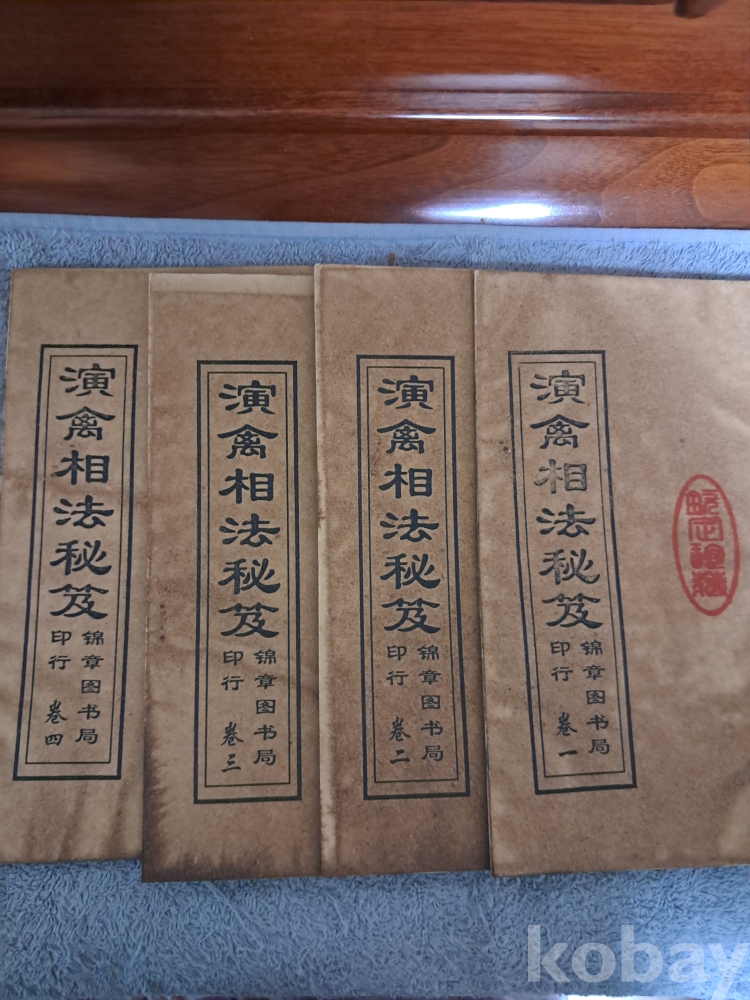 演禽相法秘笈
锦章图书局
印行
卷一
演禽相法秘笈
锦章图书局
印行
卷二
演禽相法秘笈
锦章图书局
印行
卷三
演禽相法秘笈
锦章图书局
印行
卷四
kobay